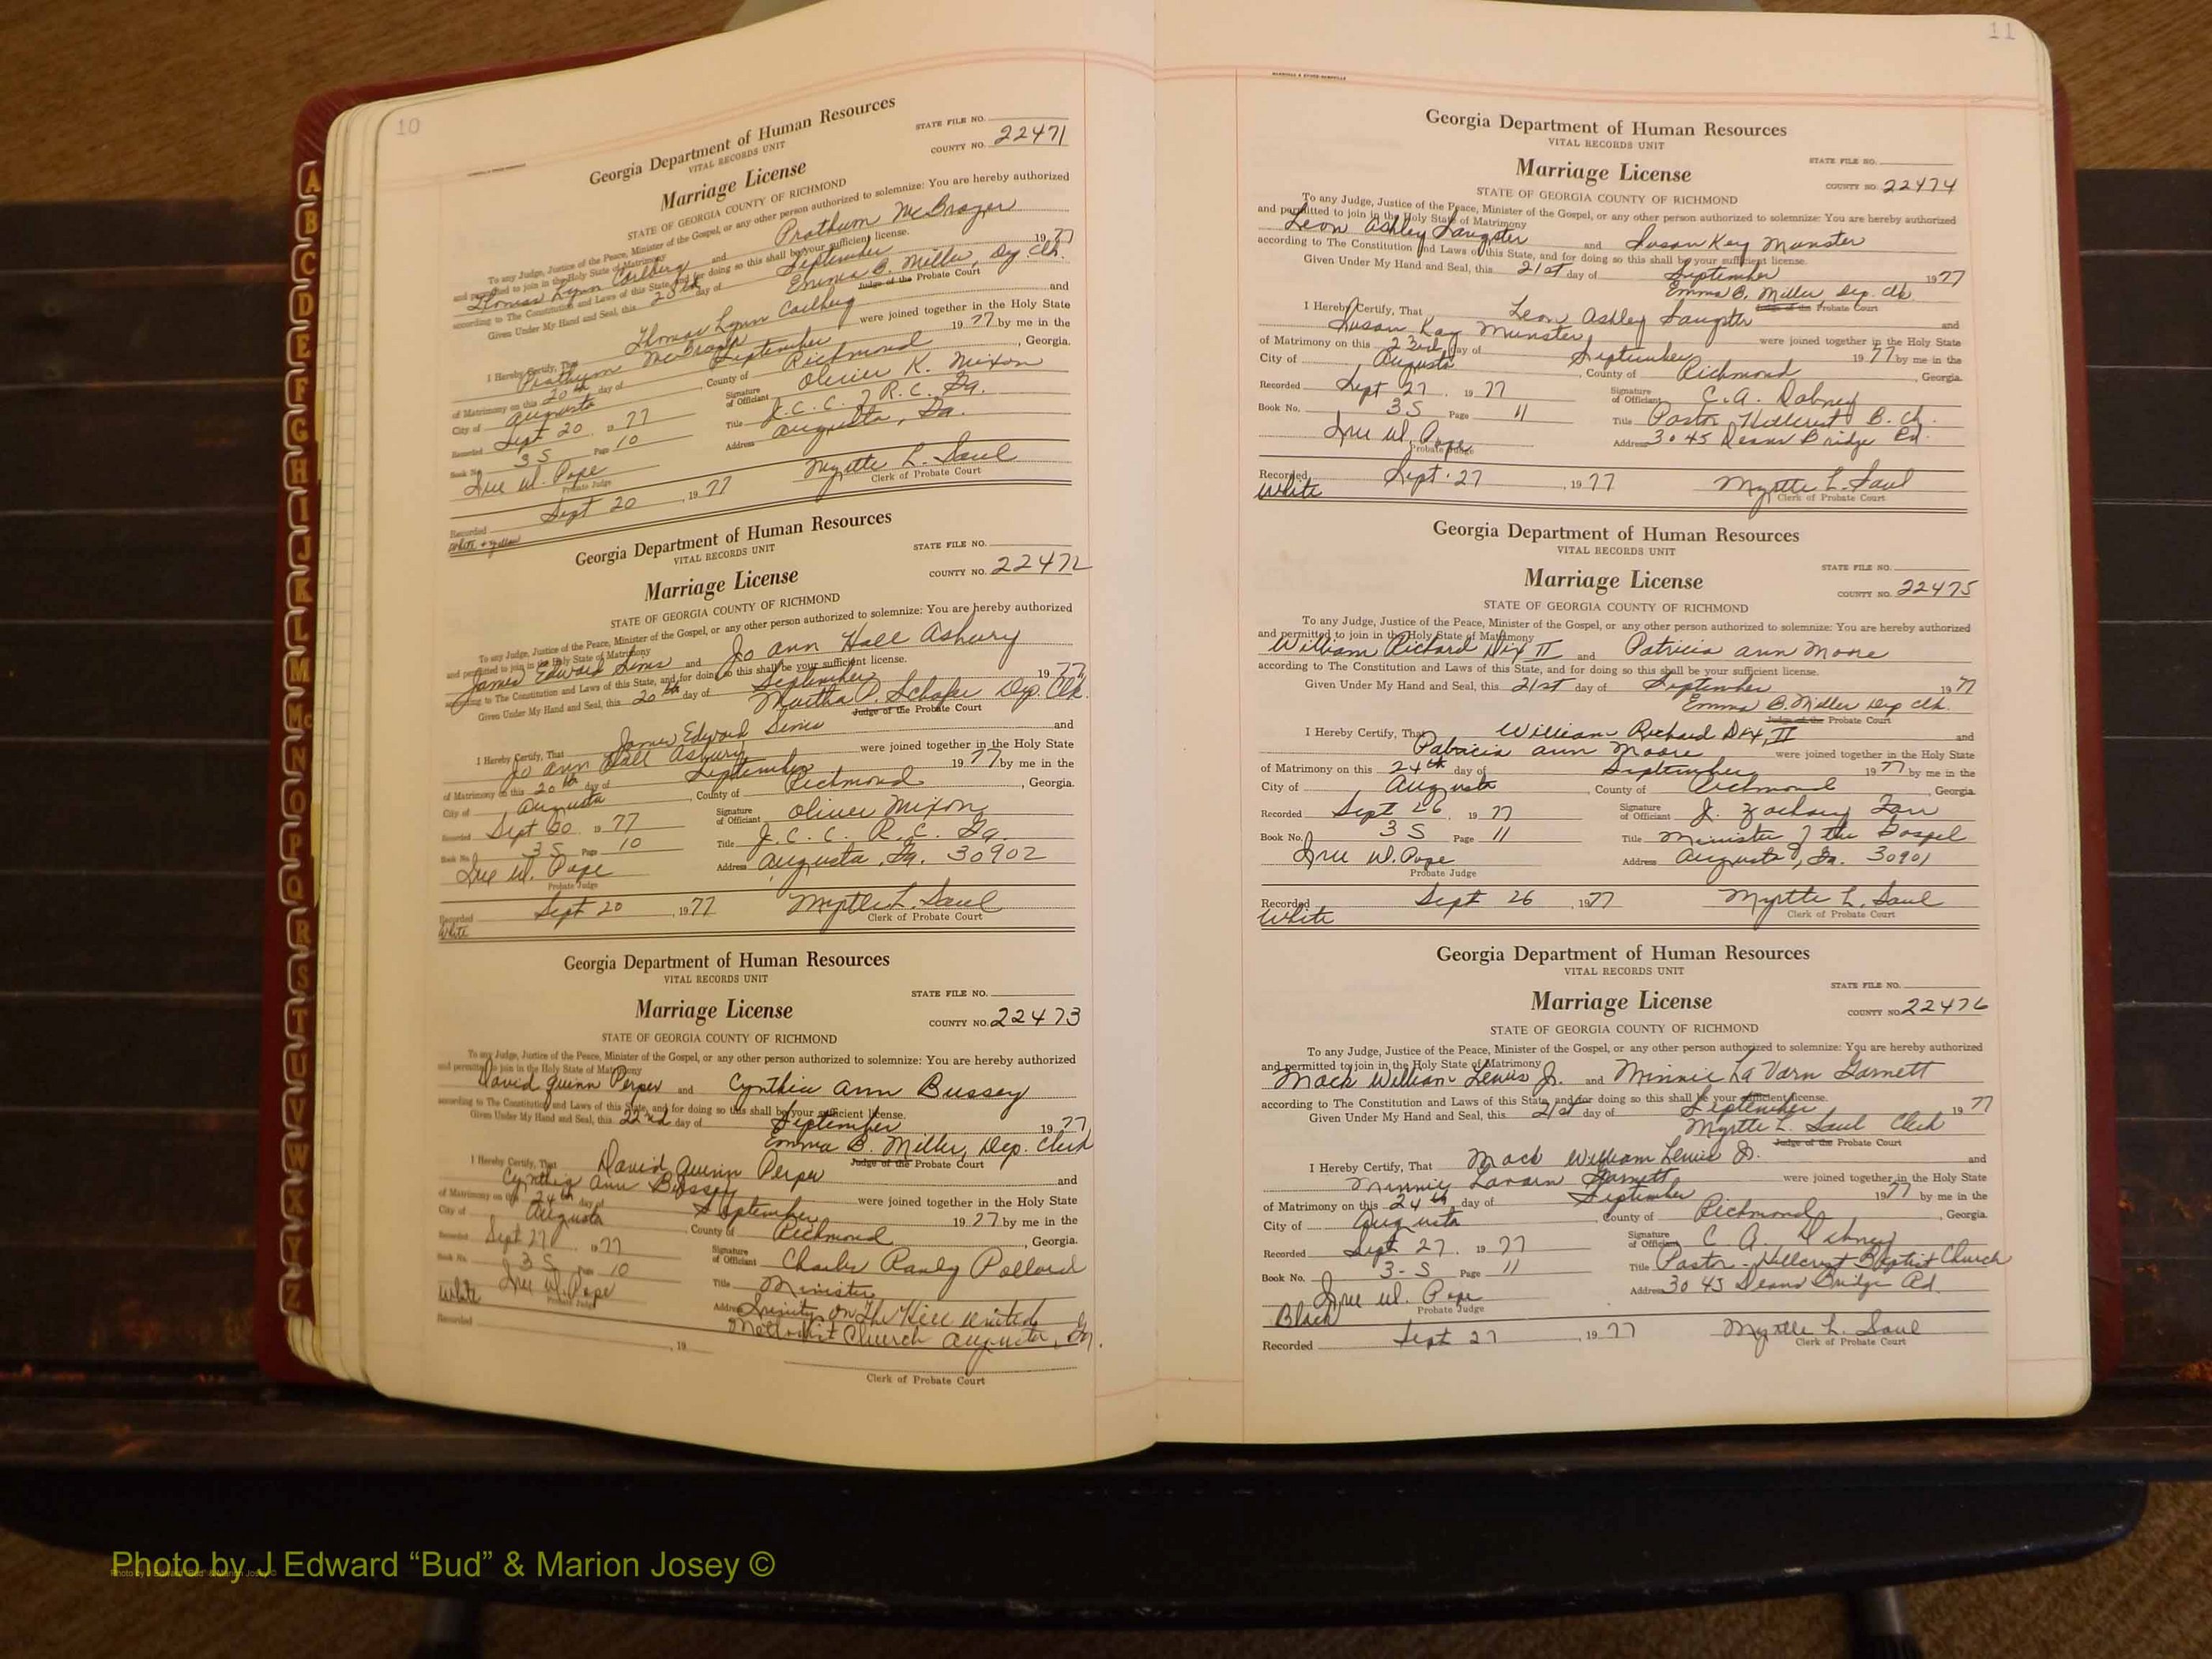 10
Georgia Department of Human Resources
VITAL RECORDS UNIT
STATE FILE NO.
COUNTY NO. 22471
Marriage License
STATE OF GEORGIA COUNTY OF RICHMOND
To any Judge, Justice of the Peace, Minister of the Gospel, or any other person authorized to solemnize: You are hereby authorized
and permitted to join in the Holy State of Matrimony
Thomas Lynn Carlberg and Prathum McBrayer
according to The Constitution and Laws of this State, and for doing so this shall be your sufficient license.
Given Under My Hand and Seal, this 20th day of September 1977
Emma B. Miller, Dep Clk.
Judge of the Probate Court
I Hereby Certify, That Thomas Lynn Carlberg and
Prathum McBrayer were joined together in the Holy State
of Matrimony on this 20th day of September 1977 by me in the
City of Augusta, County of Richmond, Georgia.
Recorded Sept 20 1977 Signature of Officiant Olivier K. Mixon
Book No. 3S Page 10 Title J.C.C. of R.C. Ga.
Iree W. Pope Address Augusta, Ga.
Probate Judge
Recorded Sept 20, 1977 Myrtle L. Saul
White + Yellow Clerk of Probate Court
Georgia Department of Human Resources
VITAL RECORDS UNIT
STATE FILE NO.
COUNTY NO. 22472
Marriage License
STATE OF GEORGIA COUNTY OF RICHMOND
To any Judge, Justice of the Peace, Minister of the Gospel, or any other person authorized to solemnize: You are hereby authorized
and permitted to join in the Holy State of Matrimony
James Edward Sims and Jo Ann Hall Asbury
according to The Constitution and Laws of this State, and for doing so this shall be your sufficient license.
Given Under My Hand and Seal, this 20th day of September 1977
Martha P. Schafer Dep. Clk.
Judge of the Probate Court
I Hereby Certify, That James Edward Sims and
Jo Ann Hall Asbury were joined together in the Holy State
of Matrimony on this 20th day of September 1977 by me in the
City of Augusta, County of Richmond, Georgia.
Recorded Sept 20 1977 Signature of Officiant Oliver Mixon
Book No. 3S Page 10 Title J.C.C. R.C. Ga.
Iree W. Pope Address Augusta, Ga. 30902
Probate Judge
Recorded Sept 20, 1977 Myrtle L. Saul
White Clerk of Probate Court
Georgia Department of Human Resources
VITAL RECORDS UNIT
STATE FILE NO.
COUNTY NO. 22473
Marriage License
STATE OF GEORGIA COUNTY OF RICHMOND
To any Judge, Justice of the Peace, Minister of the Gospel, or any other person authorized to solemnize: You are hereby authorized
and permitted to join in the Holy State of Matrimony
David Quinn Perper and Cynthia Ann Bussey
according to The Constitution and Laws of this State, and for doing so this shall be your sufficient license.
Given Under My Hand and Seal, this 22nd day of September 1977
Emma B. Miller, Dep. Clerk
Judge of the Probate Court
I Hereby Certify, That David Quinn Perper and
Cynthia Ann Bussey were joined together in the Holy State
of Matrimony on this 24th day of September 1927 by me in the
City of Augusta, County of Richmond, Georgia.
Recorded Sept 27 1977 Signature of Officiant Charles Randy Pollard
Book No. 3S Page 10 Title Minister
White Iree W. Pope Address Trinity on The Hill United
Probate Judge Methodist Church Augusta, Ga.
Recorded , 19
Clerk of Probate Court
11
Georgia Department of Human Resources
VITAL RECORDS UNIT
STATE FILE NO.
Marriage License
COUNTY NO. 22474
STATE OF GEORGIA COUNTY OF RICHMOND
To any Judge, Justice of the Peace, Minister of the Gospel, or any other person authorized to solemnize: You are hereby authorized
and permitted to join in the Holy State of Matrimony
Leon Ashley Sangster and Susan Kay Munster
according to The Constitution and Laws of this State, and for doing so this shall be your sufficient license.
Given Under My Hand and Seal, this 21st day of September 1977
Emma B. Miller Dep. Clk.
Judge of the Probate Court
I Hereby Certify, That Leon Ashley Sangster and
Susan Kay Munster were joined together in the Holy State
of Matrimony on this 23rd day of September 1977 by me in the
City of Augusta, County of Richmond, Georgia.
Recorded Sept 27, 1977 Signature of Officiant C.A. Dabney
Book No. 3S Page 11 Title Pastor Hillcrest B. Ch.
Iree W. Pope Address 3045 Deans Bridge Rd.
Probate Judge
Recorded Sept. 27, 1977 Myrtle L. Saul
White Clerk of Probate Court
Georgia Department of Human Resources
VITAL RECORDS UNIT
STATE FILE NO.
Marriage License
COUNTY NO. 22475
STATE OF GEORGIA COUNTY OF RICHMOND
To any Judge, Justice of the Peace, Minister of the Gospel, or any other person authorized to solemnize: You are hereby authorized
and permitted to join in the Holy State of Matrimony
William Richard Dix II and Patricia Ann Moore
according to The Constitution and Laws of this State, and for doing so this shall be your sufficient license.
Given Under My Hand and Seal, this 21st day of September 1977
Emma B. Miller Dep Clk.
Judge of the Probate Court
I Hereby Certify, That William Richard Dix, II and
Patricia Ann Moore were joined together in the Holy State
of Matrimony on this 24th day of September 1977 by me in the
City of Augusta, County of Richmond, Georgia.
Recorded Sept 26, 1977 Signature of Officiant J. Zachary
Book No. 3S Page 11 Title Minister of the Gospel
Iree W. Pope Address Augusta, Ga. 30901
Probate Judge
Recorded Sept 26, 1977 Myrtle L. Saul
White Clerk of Probate Court
Georgia Department of Human Resources
VITAL RECORDS UNIT
STATE FILE NO.
Marriage License
COUNTY NO. 22476
STATE OF GEORGIA COUNTY OF RICHMOND
To any Judge, Justice of the Peace, Minister of the Gospel, or any other person authorized to solemnize: You are hereby authorized
and permitted to join in the Holy State of Matrimony
Mack William Lewis Jr. and Minnie La Varn Garnett
according to The Constitution and Laws of this State, and for doing so this shall be your sufficient license.
Given Under My Hand and Seal, this 21st day of September 1977
Myrtle L. Saul Clerk
Judge of the Probate Court
I Hereby Certify, That Mack William Lewis Jr. and
Minnie Lavarn Garnett were joined together in the Holy State
of Matrimony on this 24th day of September 1977 by me in the
City of Augusta, County of Richmond, Georgia
Recorded Sept 27, 1977 Signature of Officiant C. A. Dabney
Book No. 3-S Page 11 Title Pastor - Hillcrest Baptist Church
Iree W. Pope Address 3045 Deans Bridge Rd.
Black Probate Judge
Recorded Sept 27, 1977 Myrtle L. Saul
Clerk of Probate Court
A
B
C
D
E
F
G
H
I
J
K
L
M
Mc
N
O
P
Q
R
S
T
U
V
W
X
Y
Z
Photo by J Edward “Bud” & Marion Josey ©
Photo by J Edward “Bud” & Marion Josey ©